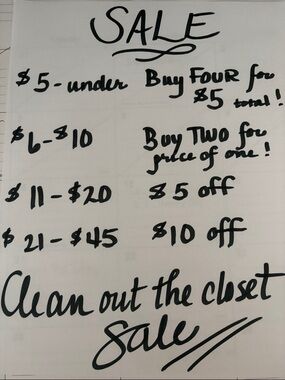 SALE
$5 - under Buy FOUR for
$5 total!
$6 - $10 Buy TWO for
price of one!
$11 - $20 $5 off
$21 - $45 $10 off
Clean out the closet
Sale